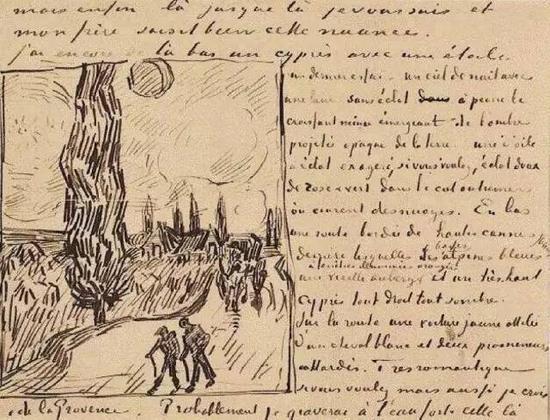 mais enfin là jusque là je vous suis et
mon frère saisit bien cette nuance.
j'ai encore de là bas un cyprès avec une étoile
un dernier essai – un ciel de nuit avec
une lune sans éclat à peine le
croissant mince émergeant de l'ombre
projetée opaque de la terre – une étoile
à éclat exagéré, si vous voulez, éclat doux
de rose & vert dans le ciel outremer
où courent des nuages. En bas
une route bordée de hautes cannes
derrière lesquelles les basses alpines bleues
à fenêtres illuminées orangé
une vieille auberge et un très haut
cyprès tout droit tout sombre.
Sur la route une voiture jaune attelée
d'un cheval blanc et deux promeneurs
attardés. Très romantique
si vous voulez mais aussi je crois
de la Provence. Probablement je graverai à l'eau forte celle là